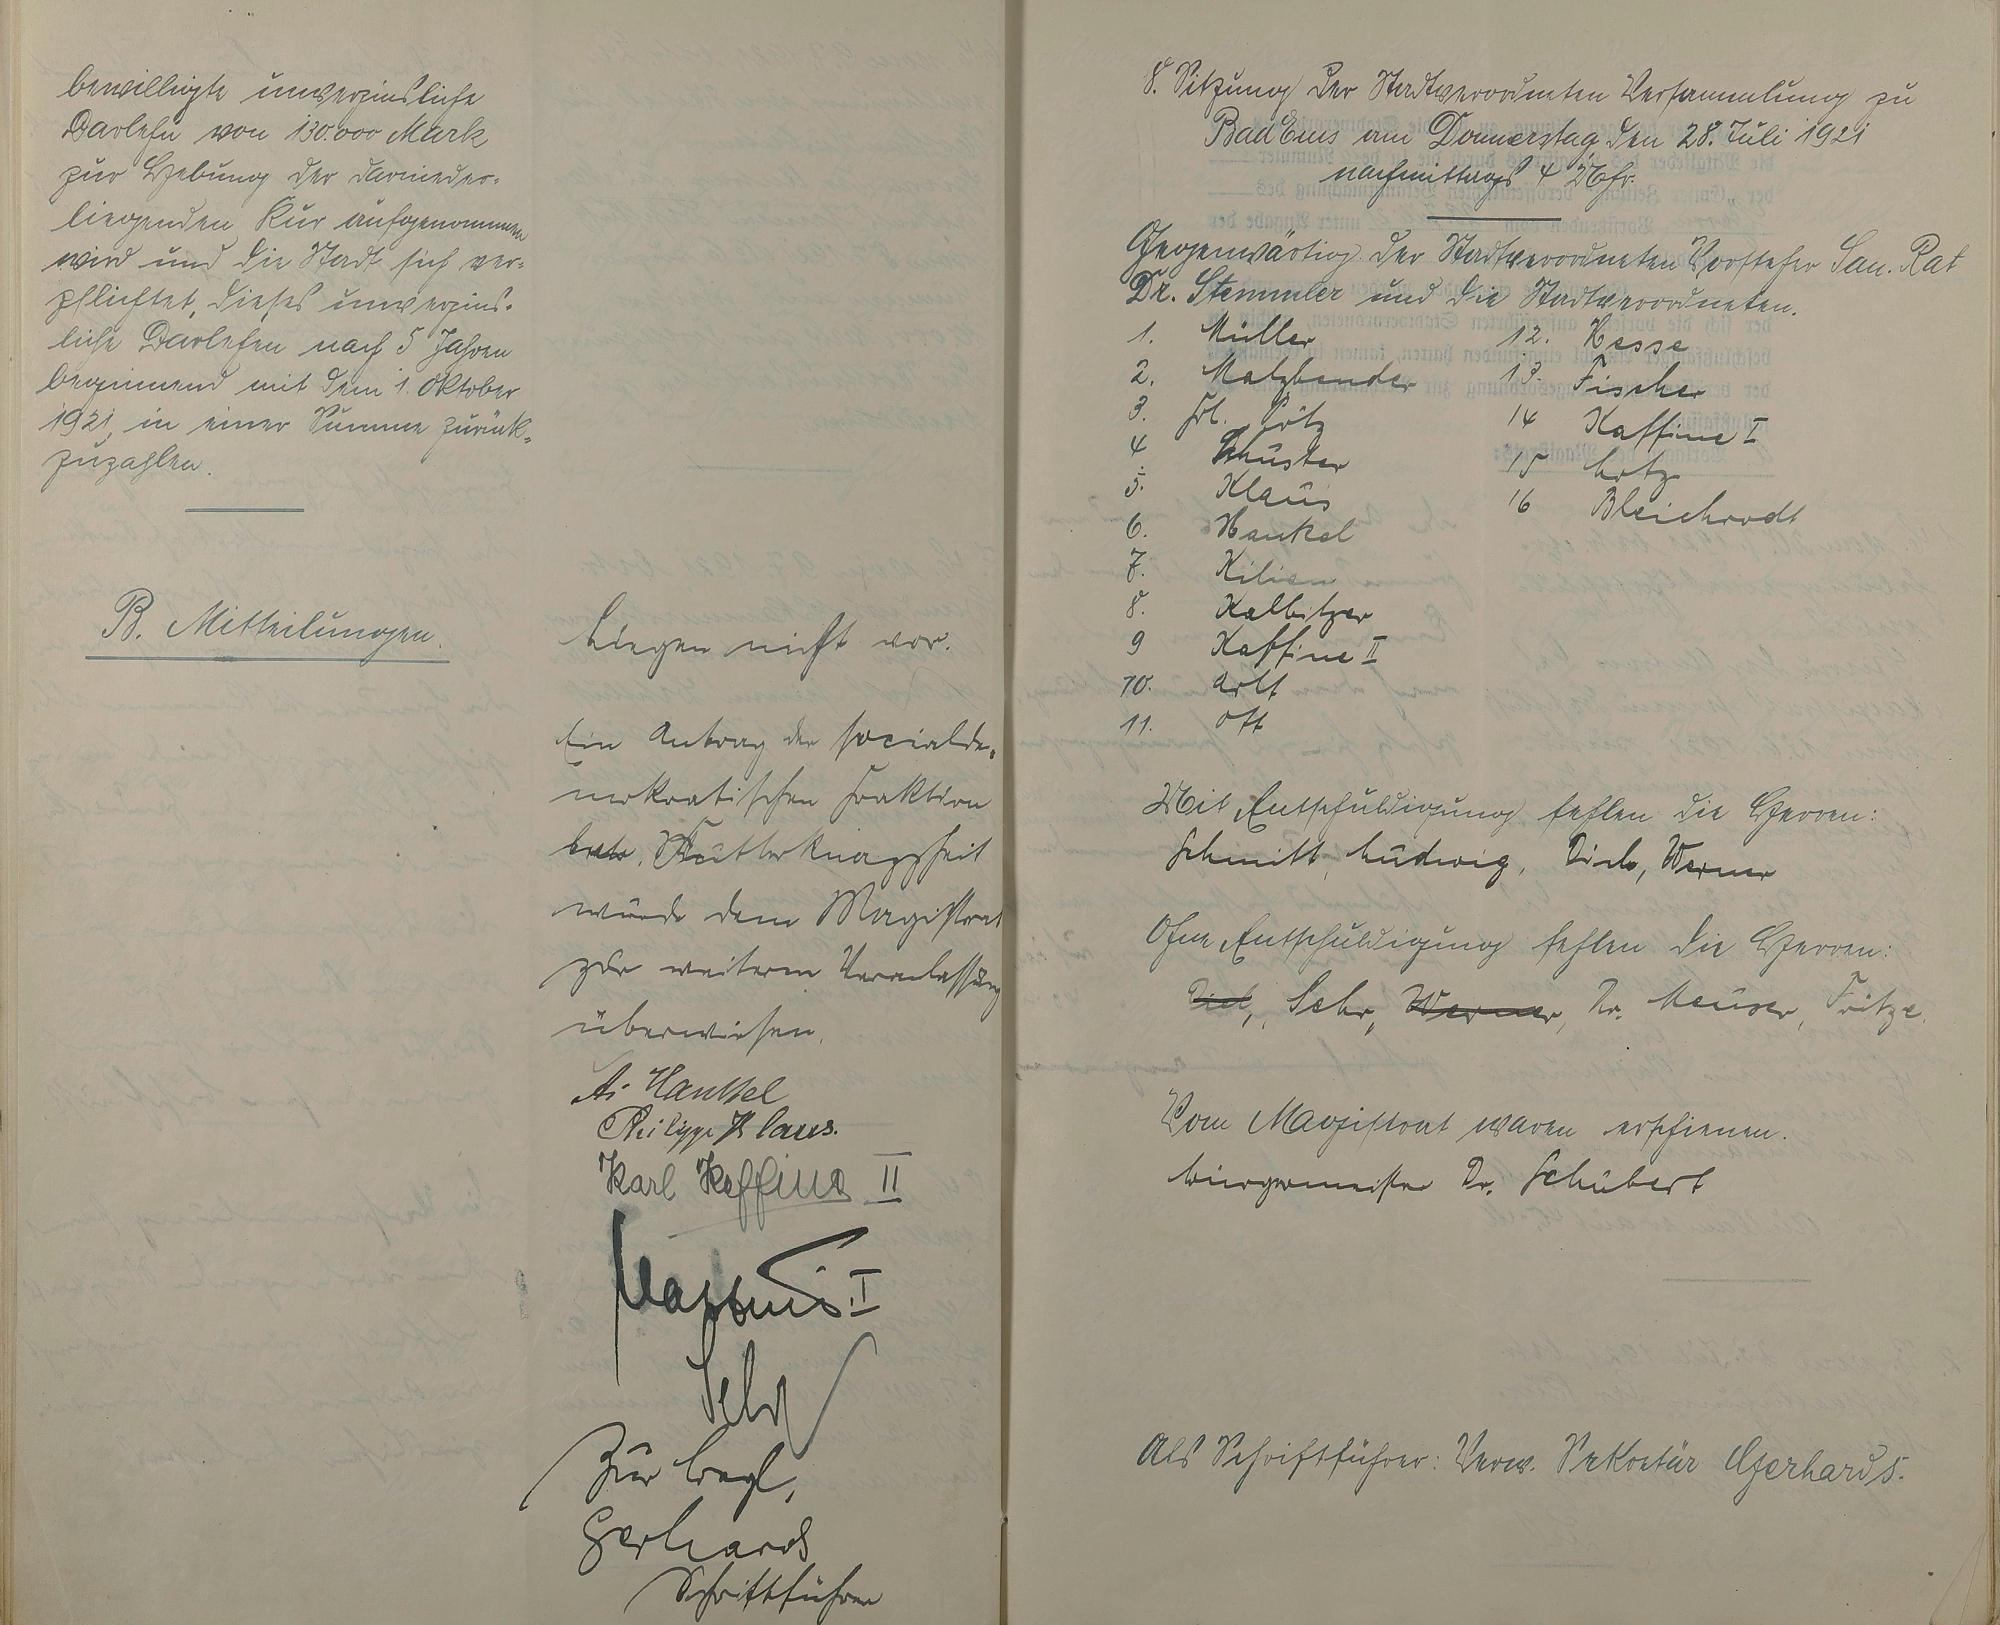 bewilligte unverzinsliche
Darlehn von 130.000 Mark
zur Hebung der darnieder-
liegenden Kur aufgenommen
wird und die Stadt sich ver-
pflichtet, dieses unverzins-
liche Darlehen nach 5 Jahren
beginnend mit dem 1. Oktober
1921, in einer Summe zurück-
zuzahlen.
B. Mitteilungen.
Liegen nicht vor.
Ein Antrag der socialde-
mokratischen Fraktion
betr. Futterknappheit
wurde dem Magistrat
zur weiteren Veranlassung
überwiesen.
A. Hankel
Philipp Klaus.
Karl Kaffine II
Kaffine I
Sehr
Zur Begl.
Gerhards
Schriftführer
8. Sitzung der Stadtverordneten Versammlung zu
Bad Ems am Donnerstag, den 28. Juli 1921
nachmittags 4 Uhr.
Gegenwärtig der Stadtverordneten Vorsteher San. Rat
Dr. Stemmler und die Stadtverordneten.
1. Müller
2. Malzbender
3. Frl. Pötz
4 Schuster
5. Klaus
6. Hankel
7. Kilian
8. Kalbitzer
9 Kaffine II
10. Arlt
11. Ott
12. Hesse
13. Fischer
14 Kaffine I
15 Lotz
16 Bleichrodt
Mit Entschuldigung fehlen die Herren:
Schmitt, Ludwig, Diel, Werner
Ohne Entschuldigung fehlen die Herren:
Diel, Sehr, Werner, Dr. Meuser, Fritze.
Vom Magistrat waren erschienen.
Bürgermeister Dr. Schubert
Als Schriftführer: Verw. Sekretär Gerhards.